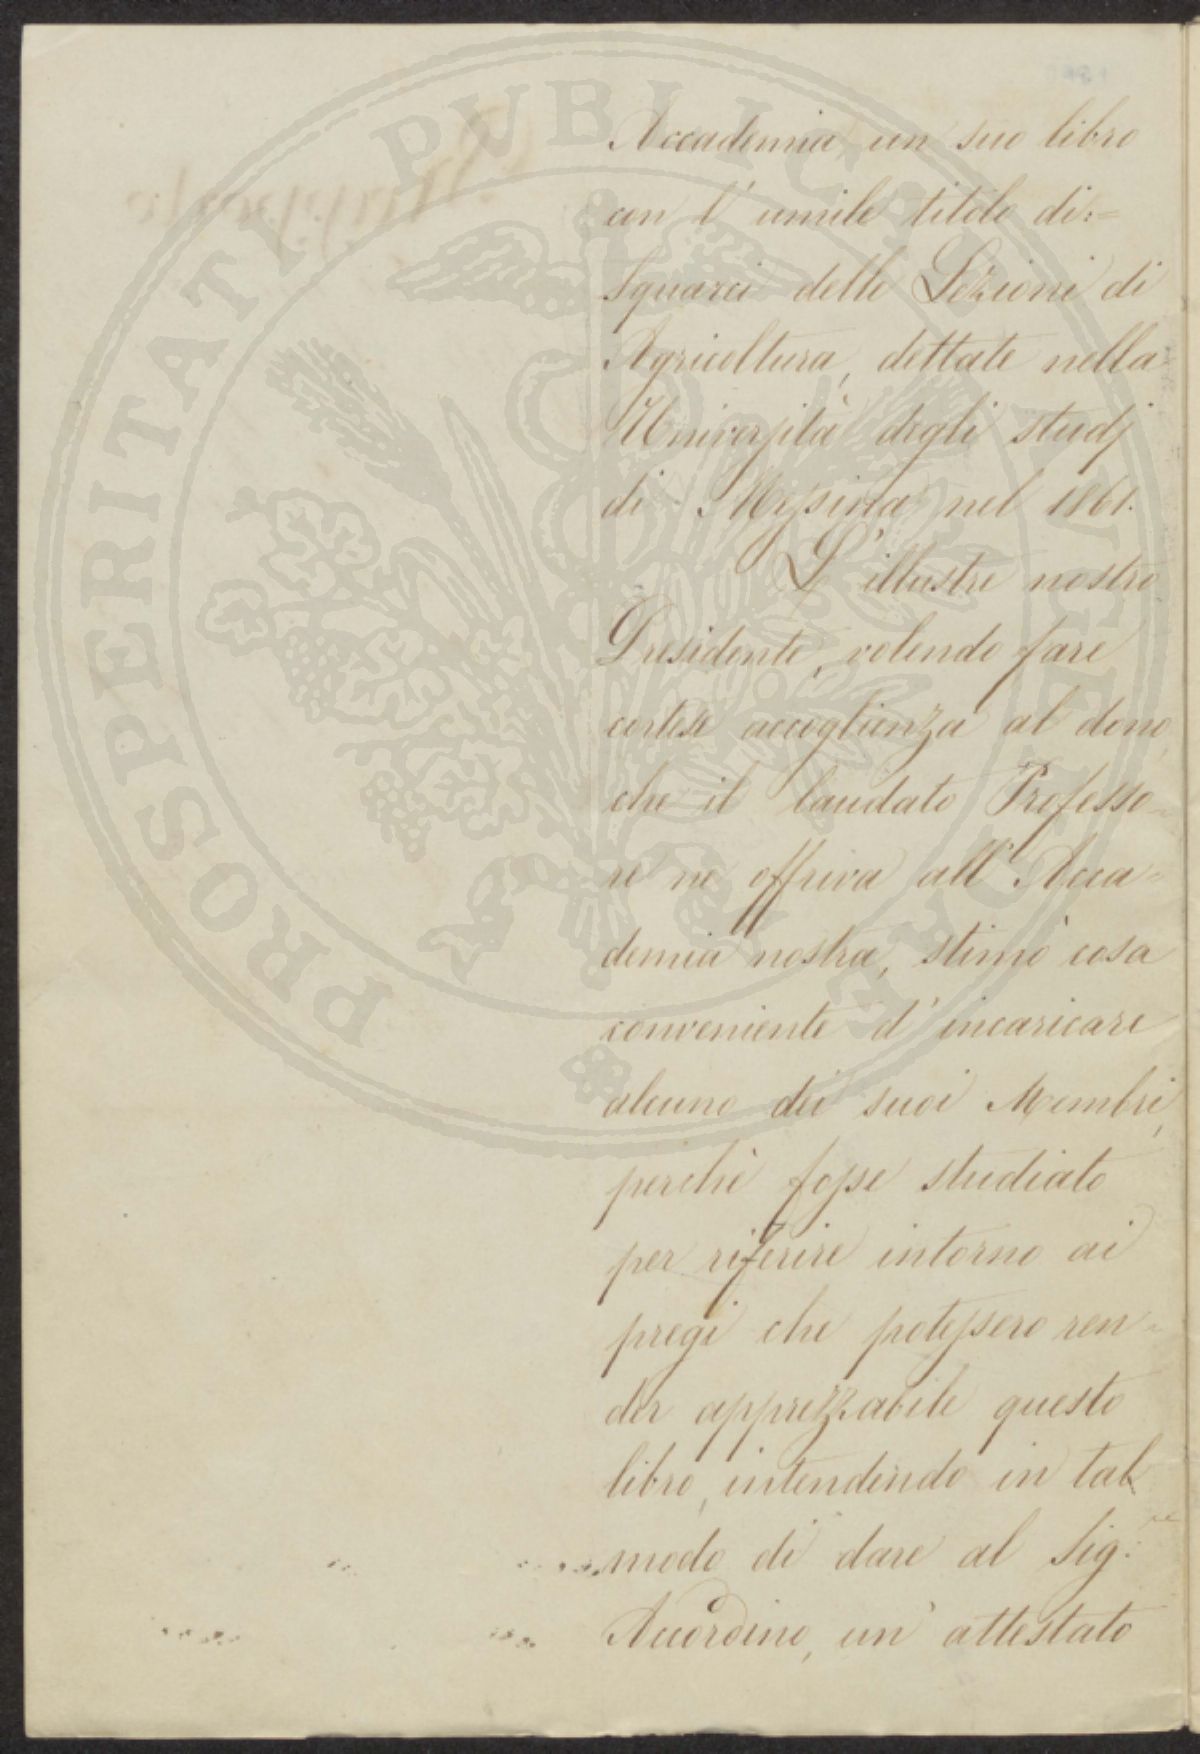 Accademia, un suo libro
con l' umile titolo di:=
Squarci delle Lezioni di
Agricoltura, dettate nella
Università degli studj
di Messina nel 1861.
L' illustre nostro
Presidente, volendo fare
cortese accoglienza al dono,
che il laudato Professo-
re ne offriva all' Acca=
demia nostra, stimò cosa
conveniente d' incaricare
alcuno dei suoi Membri,
perchè fosse studiato
per riferire intorno ai
pregi che potessero ren-
der apprezzabile questo
libro, intendendo in tal
modo di dare al Sig.re
Accordino, un' attestato
PROSPERITATI PUBLICAE AUGENDAE
Rapporto